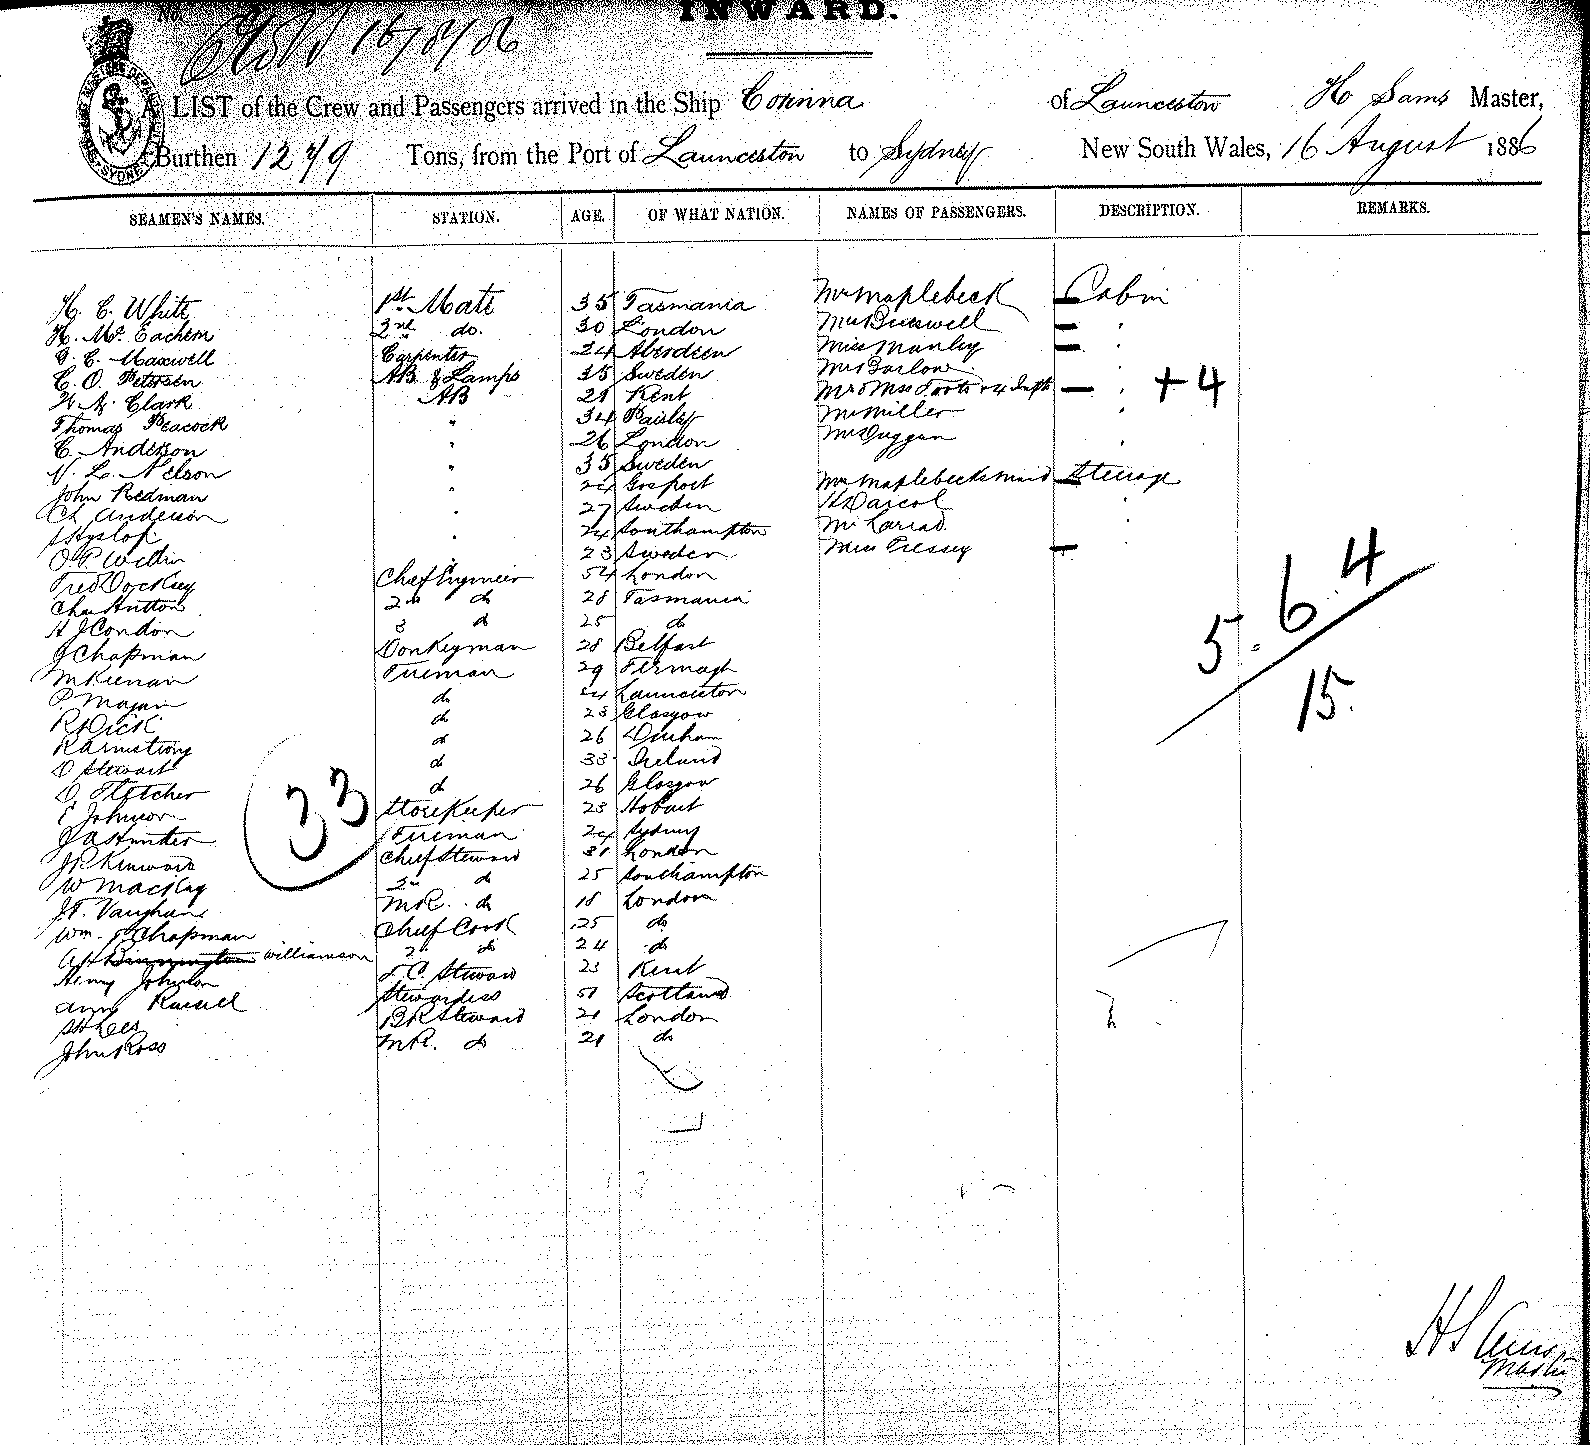 INWARD.
16/8/86
A LIST of the Crew and Passengers arrived in the Ship Corinna of Launceston H Sams Master,
Burthen 1279 Tons, from the Port of Launceston to Sydney New South Wales, 16 August 1886
SEAMEN'S NAMES. STATION. AGE. OF WHAT NATION. NAMES OF PASSENGERS. DESCRIPTION. REMARKS.
H. C. White 1st Mate 35 Tasmania Mrs Maplebeck Cabin
H. Mc Eachern 2nd do. 30 London
G. C. Maxwell Carpenter 24 Aberdeen Miss Manley
C. O. Petersen AB & Lamps 35 Sweden Mr Barlow
H. A. Clark AB 21 Kent Mr & Mrs & 4 + 4
Thomas Peacock " 34 Paisley Mr Miller
C. Anderson " 26 London Mr Duggan
N. L. Nelson " 35 Sweden
John Redman " 24 Gosport Mrs Maplebecks maid Steerage
Ch Anderson " 27 Sweden
J Hyslop " 24 Southampton Mr
O. P. " 23 Sweden Miss Pressey
Fred Chief Engineer 54 London
Chas Hutton 2nd do 28 Tasmania
H J Condon 3 do 25 do
J Chapman Donkeyman 28 Belfast
Fireman 29
P. do Launceston
R Dick do 23 Glasgow
R Armstrong do 26 Durham
D Stewart do 33 Ireland
D. Fletcher do 26 Glasgow
E Johnson Storekeeper 23 Hobart
J A Hunter Fireman 24 Sydney
J P Chief Steward 31 London
W Mackay 2nd do 25 Southampton
J. F. Vaughan M R. do 18 London
Wm. P Chapman Chief Cook 25 do
Williamson 2 do 24 do
Henry Johnston F. C. Steward 23 Kent
Ann Russell Stewardess 51 Scotland
H Lees B R Steward 21 London
John Ross M R. do 21 do
33
5. 6. 4
15.
H Sams
Master